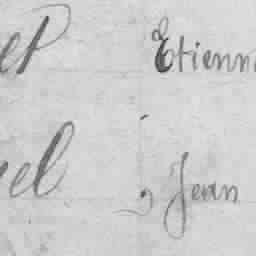 et Etienn
el , Jean